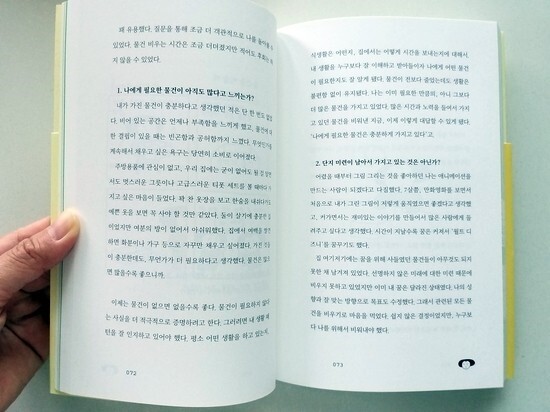 꽤 유용했다. 질문을 통해 조금 더 객관적으로 나를 돌아볼 수
있었다. 물건 비우는 시간은 조금 더뎌졌지만 적어도 후회는 하
지 않을 수 있었다.
1. 나에게 필요한 물건이 아직도 많다고 느끼는가?
내가 가진 물건이 충분하다고 생각했던 적은 단 한 번도 없었
다. 비어 있는 공간은 언제나 부족함을 느끼게 했고, 물건에 대
한 결핍이 있을 때는 빈곤함과 공허함까지 느꼈다. 무엇인가를
계속해서 채우고 싶은 욕구는 당연히 소비로 이어졌다.
주방용품에 관심이 없고, 우리 집에는 굳이 없어도 될
서도 멋스러운 그릇이나 고급스러운 티포트 세트를 볼 때마다 사
지고 싶다는 마음이 들었다. 꽉 찬 옷장을 보고 한숨을 내쉬다가도
예쁜 옷을 보면 꼭 사야 할 것만 같았다. 둘이 살기에 충분한 집
이었지만 여분의 방이 없어서 아쉬워했다. 집에서 여백을 발견
하면 화분이나 가구 등으로 자꾸만 채우고 싶어졌다. 가진 것
이 충분한데도, 무언가가 더 필요하다고 생각했다. 물건은 많으
면 많을수록 좋으니까.
이제는 물건이 없으면 없을수록 좋다. 물건이 필요하지 않다
는 사실을 더 적극적으로 증명하려고 한다. 그러려면 내 생활 패
턴을 잘 인지하고 있어야 했다. 평소 어떤 생활을 하고 있는지,
072
식생활은 어떤지, 집에서는 어떻게 시간을 보내는지에 대해서.
내 생활을 누구보다 잘 이해하고 받아들이자 나에게 어떤 물건
이 필요한지도 잘 알게 됐다. 물건이 전보다 줄었는데도 생활은
불편함 없이 유지됐다. 나는 이미 필요한 만큼의, 아니 그보다
더 많은 물건을 가지고 있었다. 많은 시간과 노력을 들여서 가지
고 있던 물건을 비워낸 지금, 이제 이렇게 대답할 수 있게 됐다.
'나에게 필요한 물건은 충분하게 가지고 있다'고.
2. 단지 미련이 남아서 가지고 있는 것은 아닌가?
어렸을 때부터 그림 그리는 것을 좋아하던 나는 애니메이션을
만드는 사람이 되겠다고 다짐했다. 7살쯤, 만화영화를 보면서
처음으로 내가 그린 그림이 저렇게 움직였으면 좋겠다고 생각했
고, 커가면서는 재미있는 이야기를 만들어서 많은 사람들에게 들
려주고 싶어졌다. 시간이 지날수록 꿈은 커져서 '월트 디
즈니'를 꿈꾸기도 했다.
집 여기저기에는 꿈을 위해 사들였던 물건들이 아무것도 되지
못한 채 남겨져 있었다. 선명하지 않은 미래에 대한 미련 때문에
비우지 못하고 있었지만 이미 내 꿈은 달라진 상태였다. 나의 성
향과 잘 맞는 방향으로 목표도 수정했다. 그래서 관련된 모든 물
건을 비우기로 마음을 먹었다. 쉽지 않은 결정이었지만, 누구보
다 나를 위해서 비워내야 했다.
073